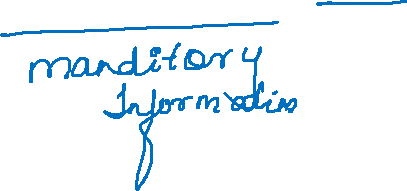 manditory
Informatin